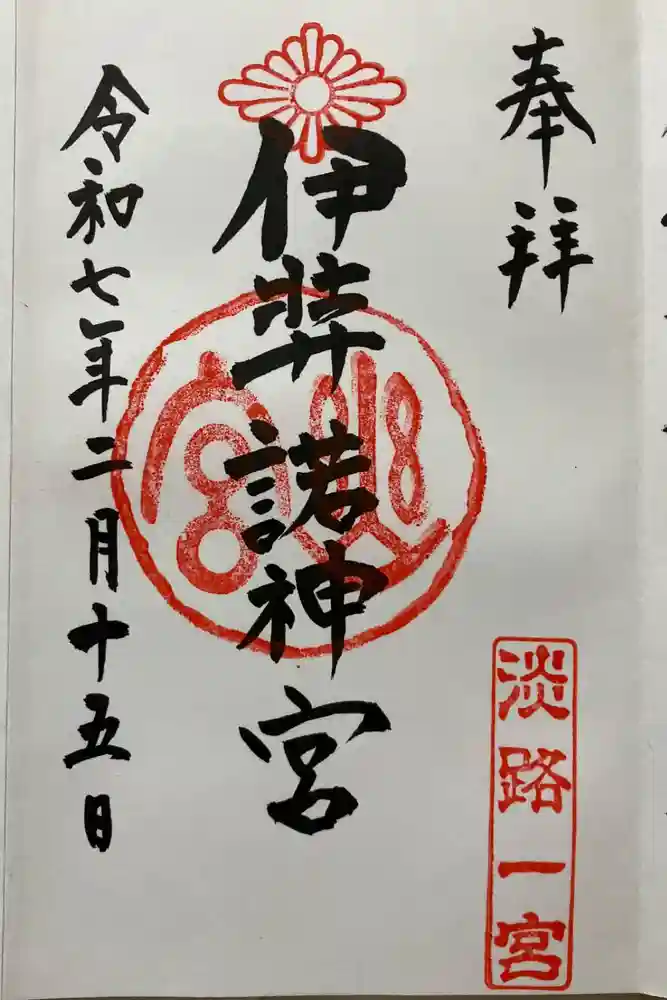 奉拝
淡路一宮
伊弉諾神宮
令和七年二月十五日